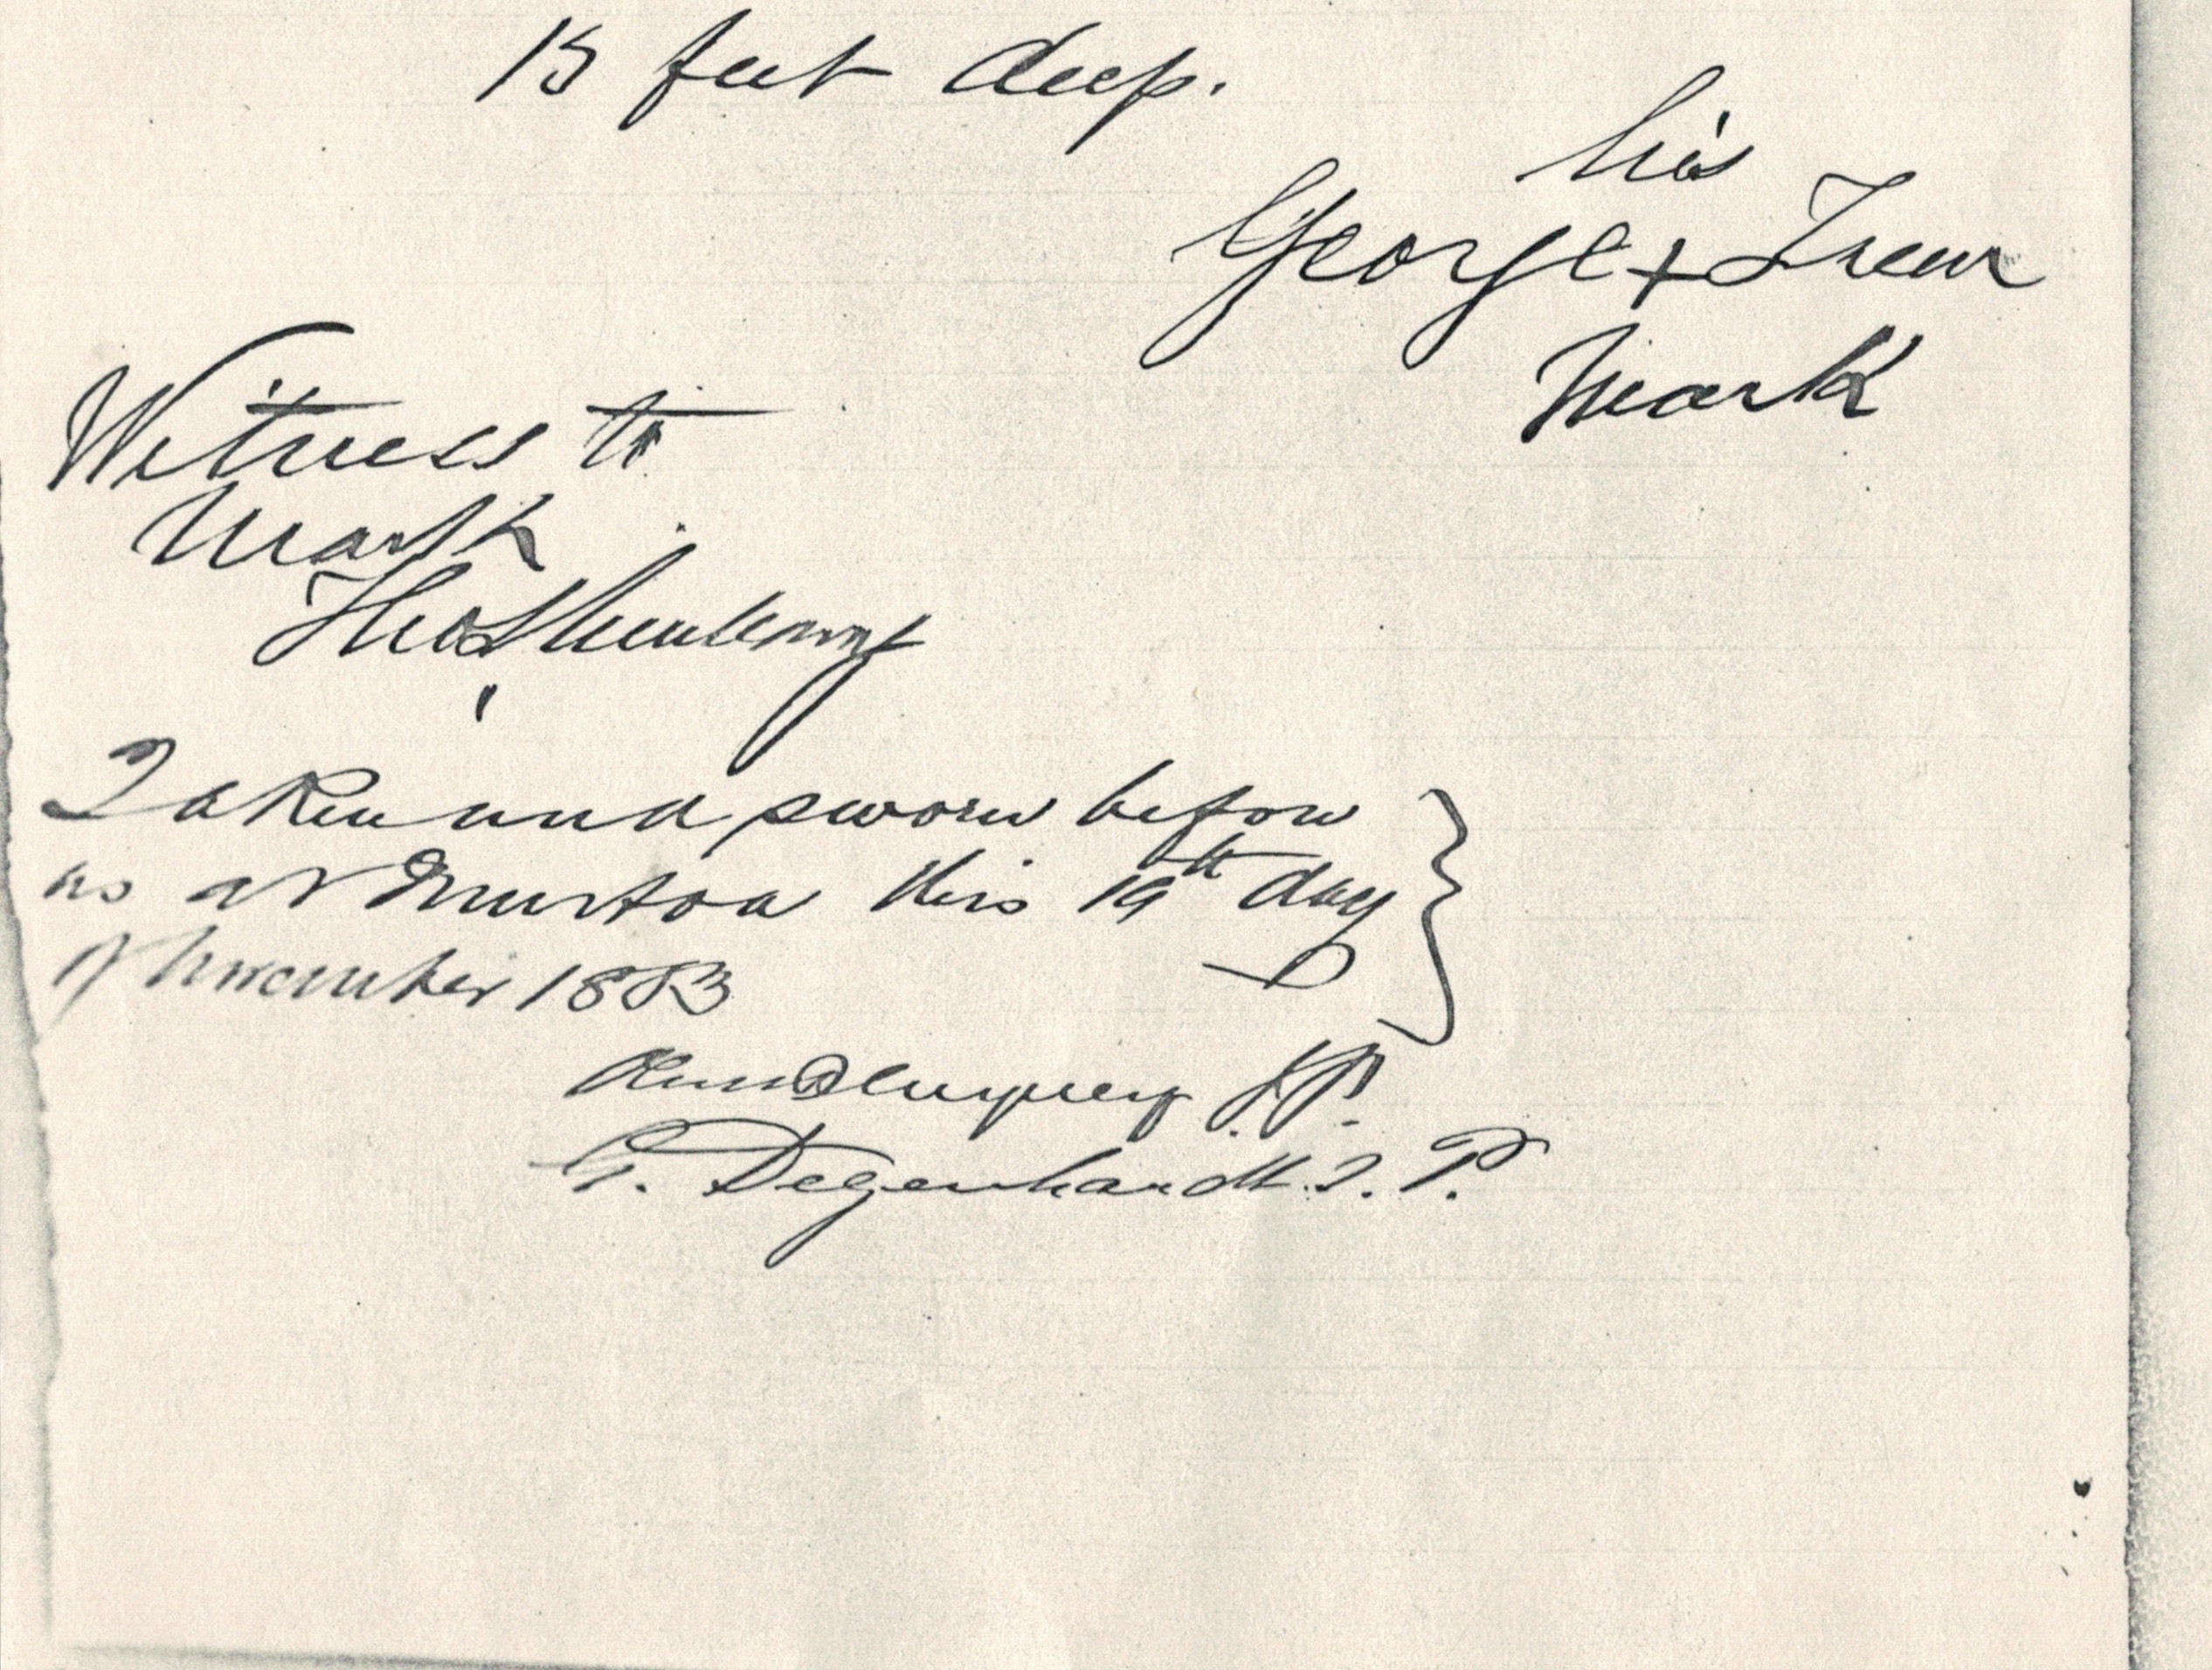 15 feet deep.
his
George + Trew
Mark
Witness to
Mark
Taken and sworn before
us at Murtoa this 19th day
of November 1883
J.P.
G. Degenhardt J.P.